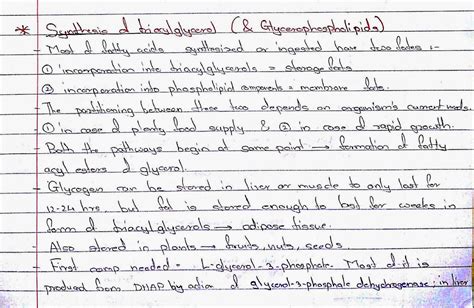 * Synthesis of triacylglycerol (& Glycerophospholipids)
- Most of fatty acids synthesized or ingested have two fates :-
① incorporation into triacylglycerols = storage fats
② incorporation into phospholipid components = membrane fats.
- The partitioning between these two depends on organism's current needs.
- ① in case of plenty food supply & ② in case of rapid growth.
- Both the pathways begin at same point → formation of fatty
acyl esters of glycerol.
- Glycogen can be stored in liver or muscle to only last for
12-24 hrs, but fat is stored enough to last for weeks in
form of triacylglycerols → adipose tissue.
- Also stored in plants → fruits, nuts, seeds.
- First comp needed = L-glycerol-3-phosphate. Most of it is
produced from DHAP by action of glycerol-3-phosphate dehydrogenase; in liver